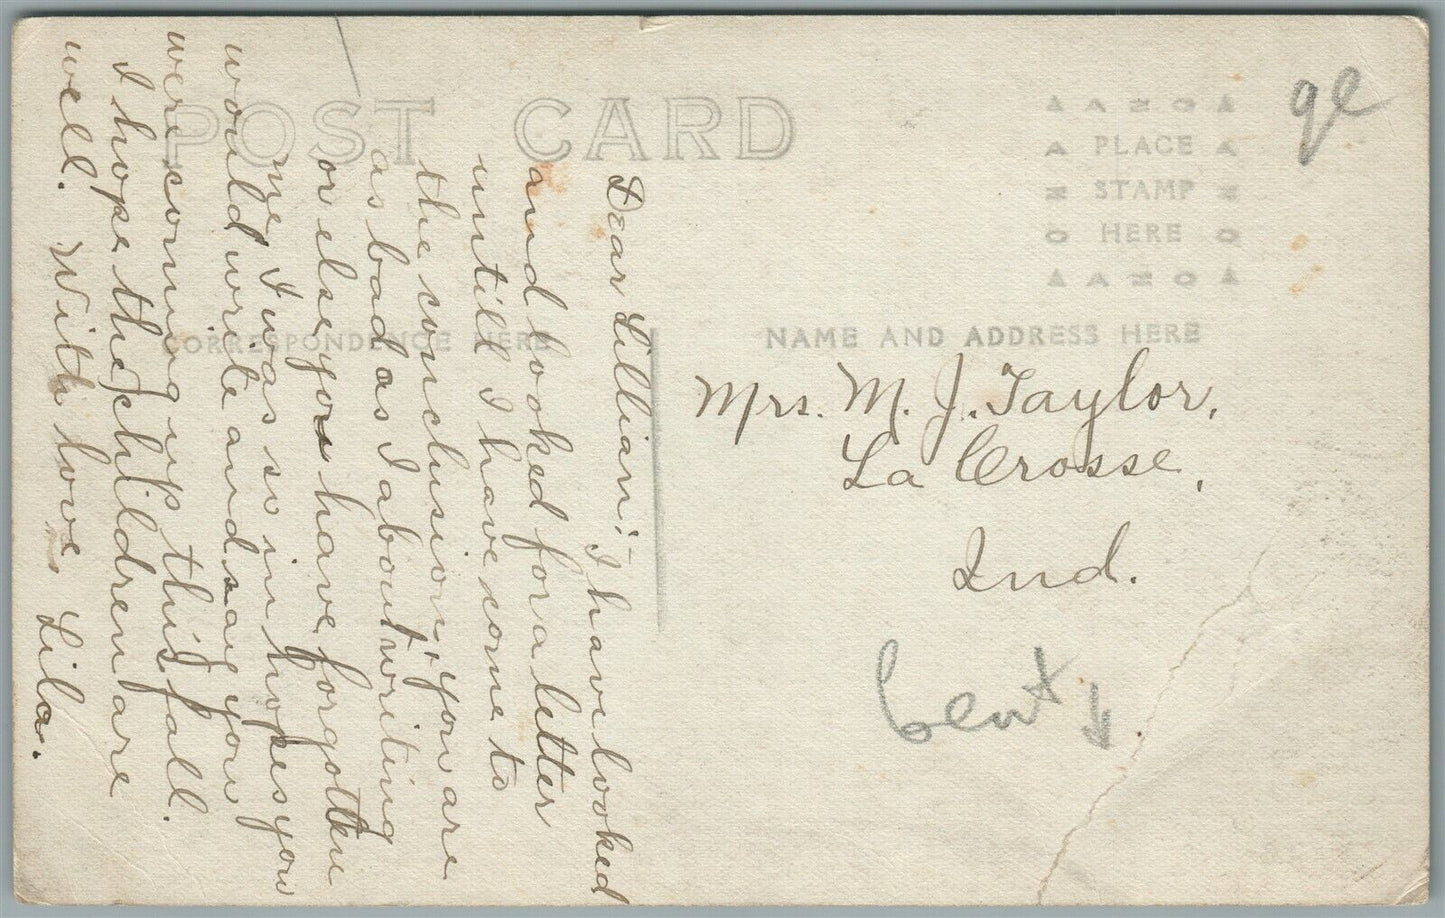 POST CARD
CORRESPONDENCE HERE
NAME AND ADDRESS HERE
PLACE
STAMP
HERE
Dear Lillian;- I have looked
and looked for a letter
untill I have come to
the conclusion, you are
as bad as I about writing
or else you have forgotten
me, I was so in hopes you
would write and say you
were coming up this fall.
I hope the children are
well. With love, Lila.
Mrs. M. J. Taylor,
La Crosse,
Ind.
bent